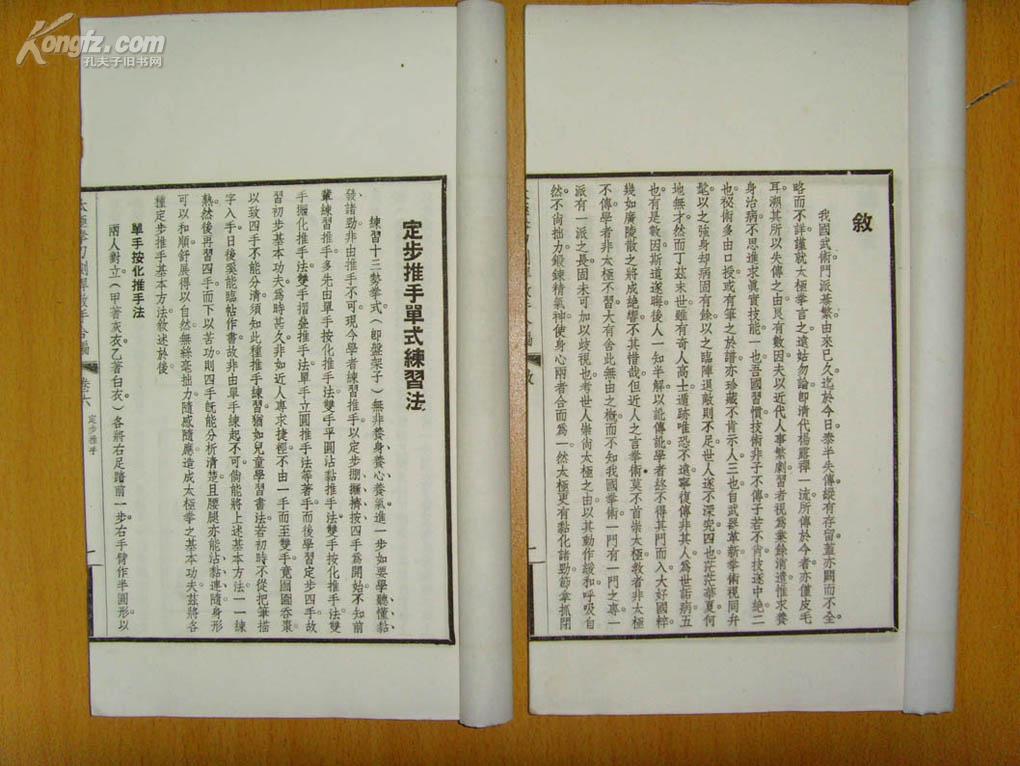 Kongfz.com
孔夫子旧书网
敘
我國武術門派綦繁由來已久迄於今日泰半失傳縱有存留蓋亦闕而不全
略而不詳謹就太極拳言之遠姑勿論即清代楊露禪一流所傳於今者亦僅皮毛
耳溯其所以失傳之由良有數因夫以近代人事繁劇習者視爲業餘消遣惟求養
身治病不思進求眞實技能一也吾國習慣技術非子不傳子若不肯技遂中絶二
也祕術多由口授或有筆之於譜亦珍藏不肯示人三也自武器革新拳術視同弁
髦以之強身却病固有餘以之臨陣退敵則不足世人遂不深究四也茫茫華夏何
地無才然而丁茲末世雖有奇人高士遁跡唯恐不遠寧復傳非其人爲世詬病五
也有是數因斯道遂晦後人一知半解以訛傳訛學者終不得其門而入大好國粹
幾如廣陵散之將成絶響不其惜哉但近人之言拳術莫不首崇太極敎者非太極
不傳學者非太極不習大有舍此無由之槪而不知我國拳術一門有一門之專一
派有一派之長固未可加以歧視也考世人崇尚太極之由以其動作緩和呼吸自
然不尚拙力鍛鍊精氣神使身心兩者合而爲一然太極更有黏化諸勁節拿抓閉
敘
一
定步推手單式練習法
練習十三勢拳式（即盤架子）無非養身養心養氣進一步如要學聽懂黏
發諸勁非由推手不可現今學者練習推手以定步掤攦擠按四手爲開始不知前
輩練習推手多先由單手按化推手法雙手平圓沾黏推手法雙手按化推手法雙
手攦化推手法雙手摺疊推手法單手立圓推手法等著手而後學習定步四手故
習初步基本功夫爲時甚久非如近人專求捷徑不由一手而至雙手竟囫圇吞棗
以致四手不能分清須知此種推手練習猶如兒童學習書法若初時不從把筆描
字入手日後奚能臨帖作書故非由單手練起不可倘能將上述基本方法一一練
熟然後再習四手而下以苦功則四手旣能分析清楚且腰腿亦能沾黏連隨身形
可以和順舒展得以自然無絲毫拙力隨感隨應造成太極拳之基本功夫茲將各
種定步推手基本方法敘述於後
單手按化推手法
兩人對立（甲著灰衣乙著白衣）各將右足踏前一步右手臂作半圓形以
太極拳刀劍桿散手合編
卷六
定步推手
一